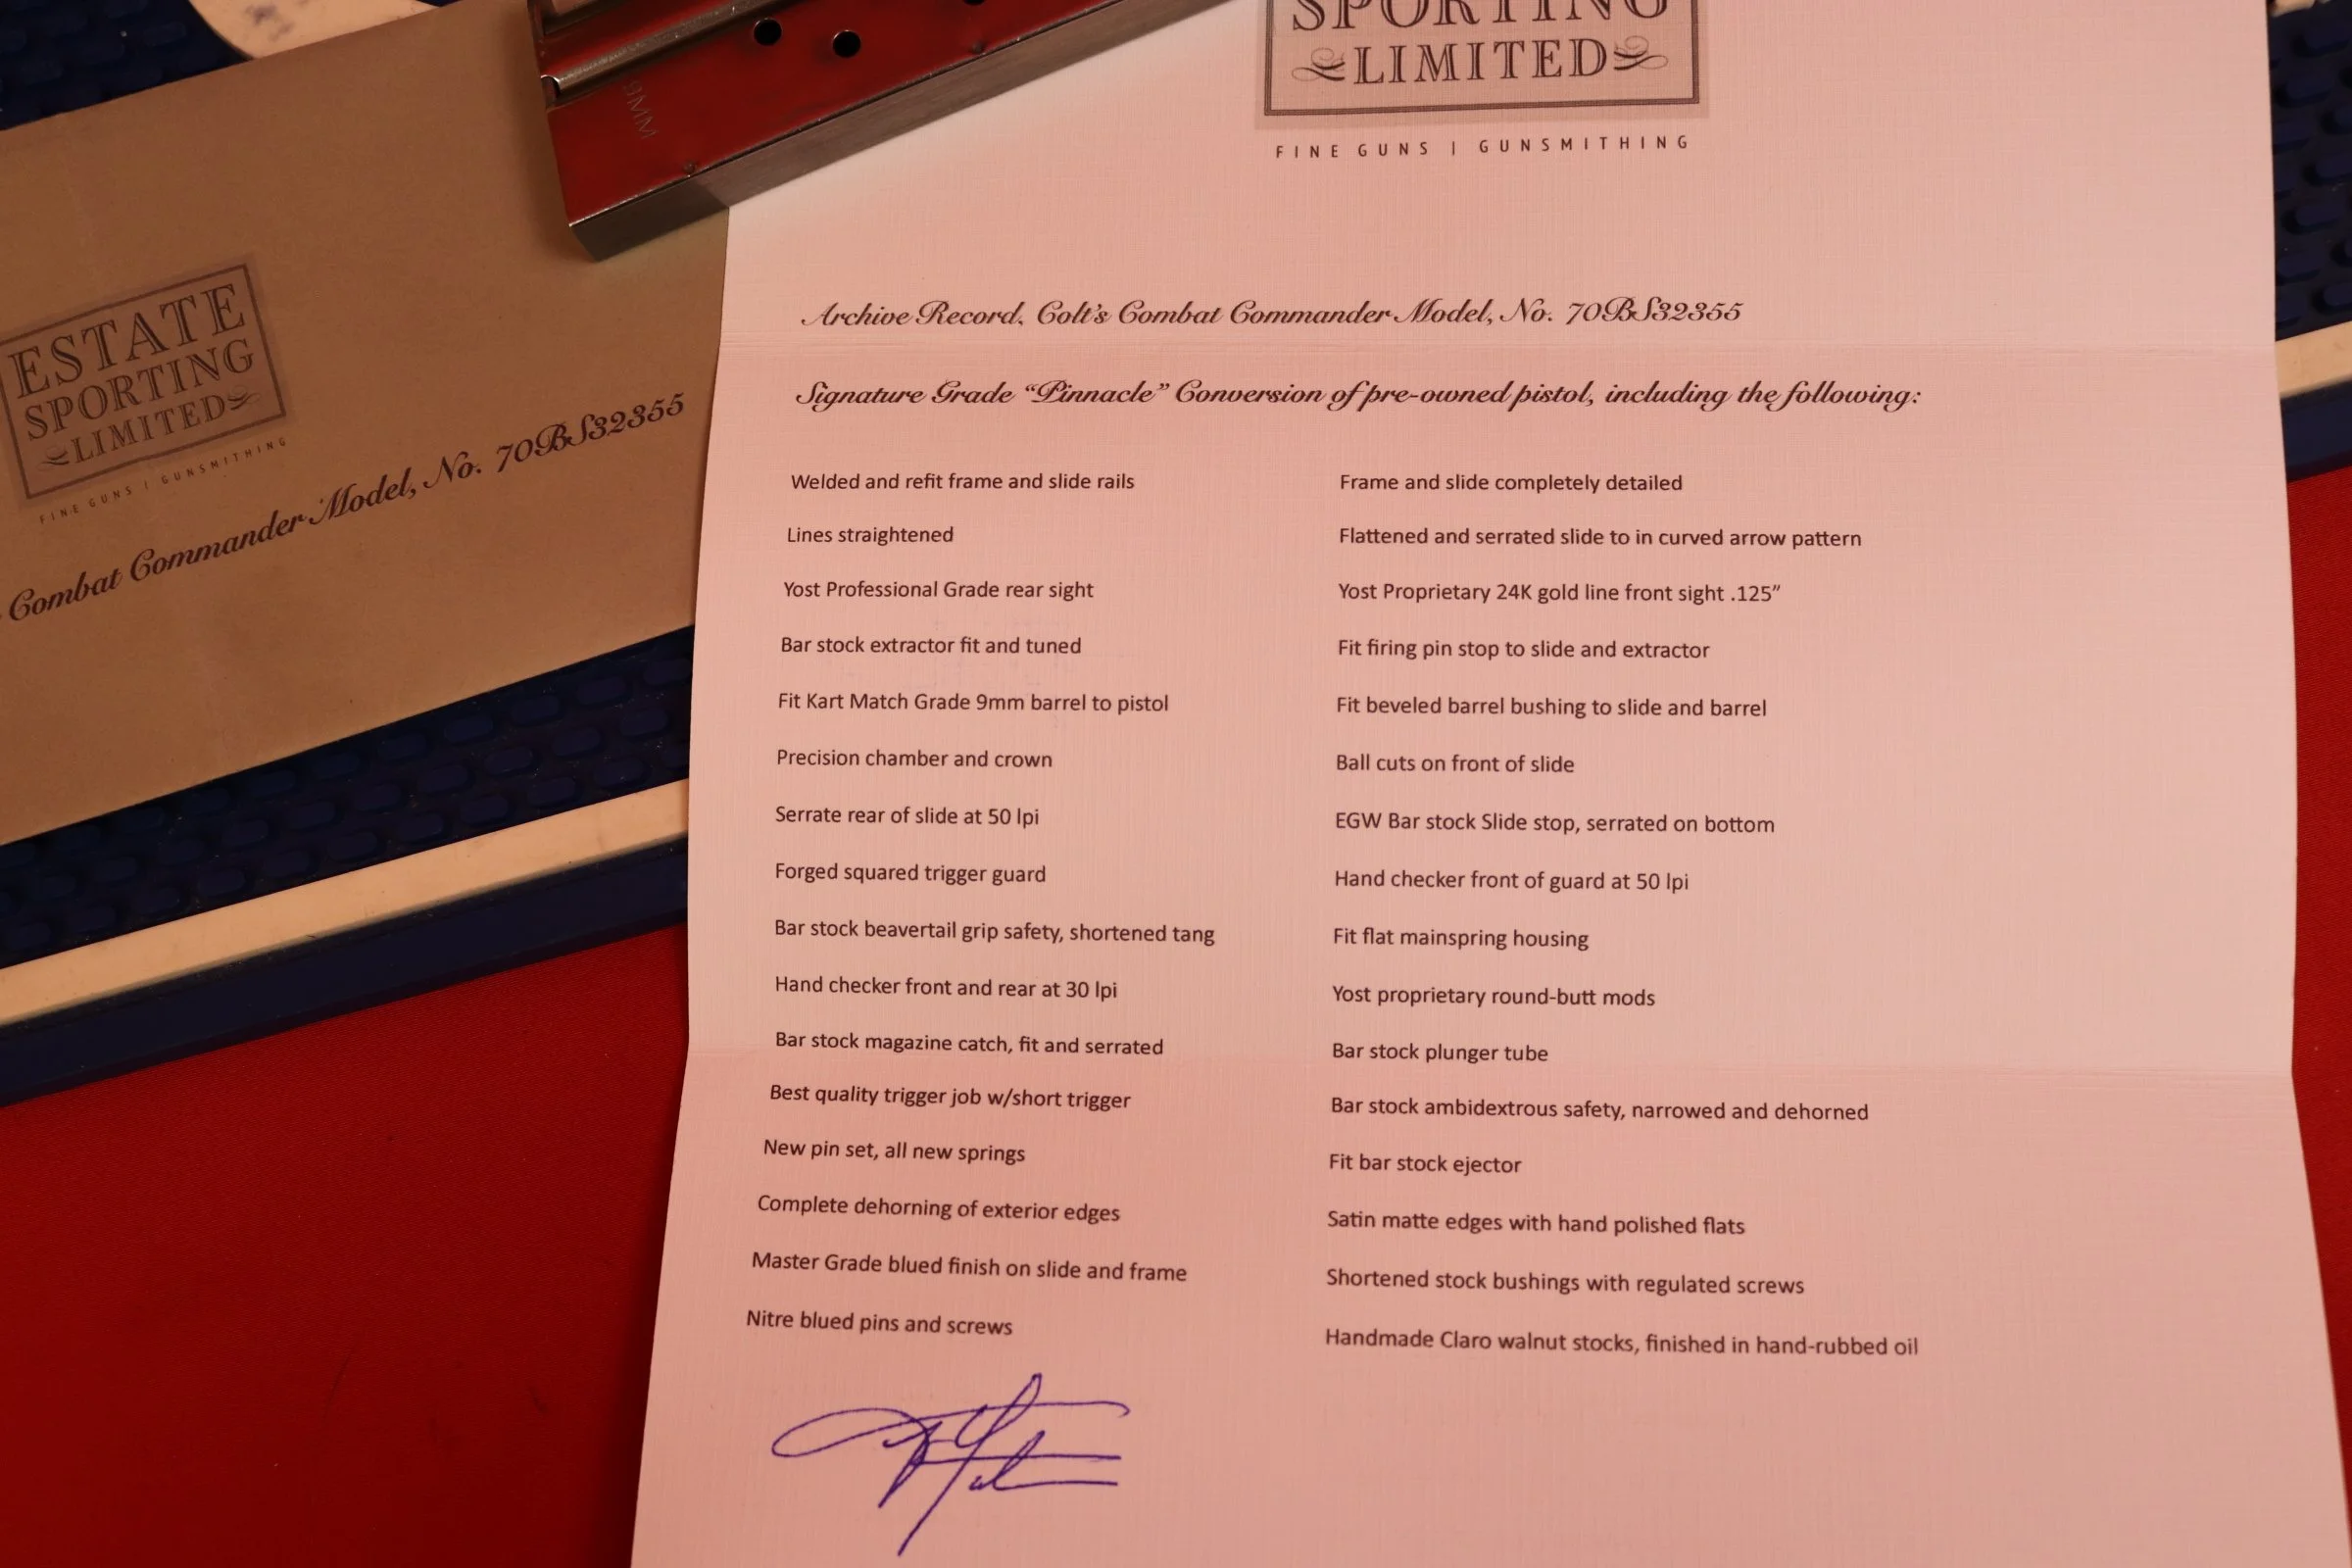 SPORTING
LIMITED
FINE GUNS | GUNSMITHING
9MM
ESTATE
SPORTING
LIMITED
FINE GUNS | GUNSMITHING
Combat Commander Model, No. 70BS32355
Archive Record. Colt's Combat Commander Model, No. 70BS32355
Signature Grade “Pinnacle” Conversion of pre-owned pistol, including the following:
Welded and refit frame and slide rails
Frame and slide completely detailed
Lines straightened
Flattened and serrated slide to in curved arrow pattern
Yost Professional Grade rear sight
Yost Proprietary 24K gold line front sight .125”
Bar stock extractor fit and tuned
Fit firing pin stop to slide and extractor
Fit Kart Match Grade 9mm barrel to pistol
Fit beveled barrel bushing to slide and barrel
Precision chamber and crown
Ball cuts on front of slide
Serrate rear of slide at 50 lpi
EGW Bar stock Slide stop, serrated on bottom
Forged squared trigger guard
Hand checker front of guard at 50 lpi
Bar stock beavertail grip safety, shortened tang
Fit flat mainspring housing
Hand checker front and rear at 30 lpi
Yost proprietary round-butt mods
Bar stock magazine catch, fit and serrated
Bar stock plunger tube
Best quality trigger job w/short trigger
Bar stock ambidextrous safety, narrowed and dehorned
New pin set, all new springs
Fit bar stock ejector
Complete dehorning of exterior edges
Satin matte edges with hand polished flats
Master Grade blued finish on slide and frame
Shortened stock bushings with regulated screws
Nitre blued pins and screws
Handmade Claro walnut stocks, finished in hand-rubbed oil